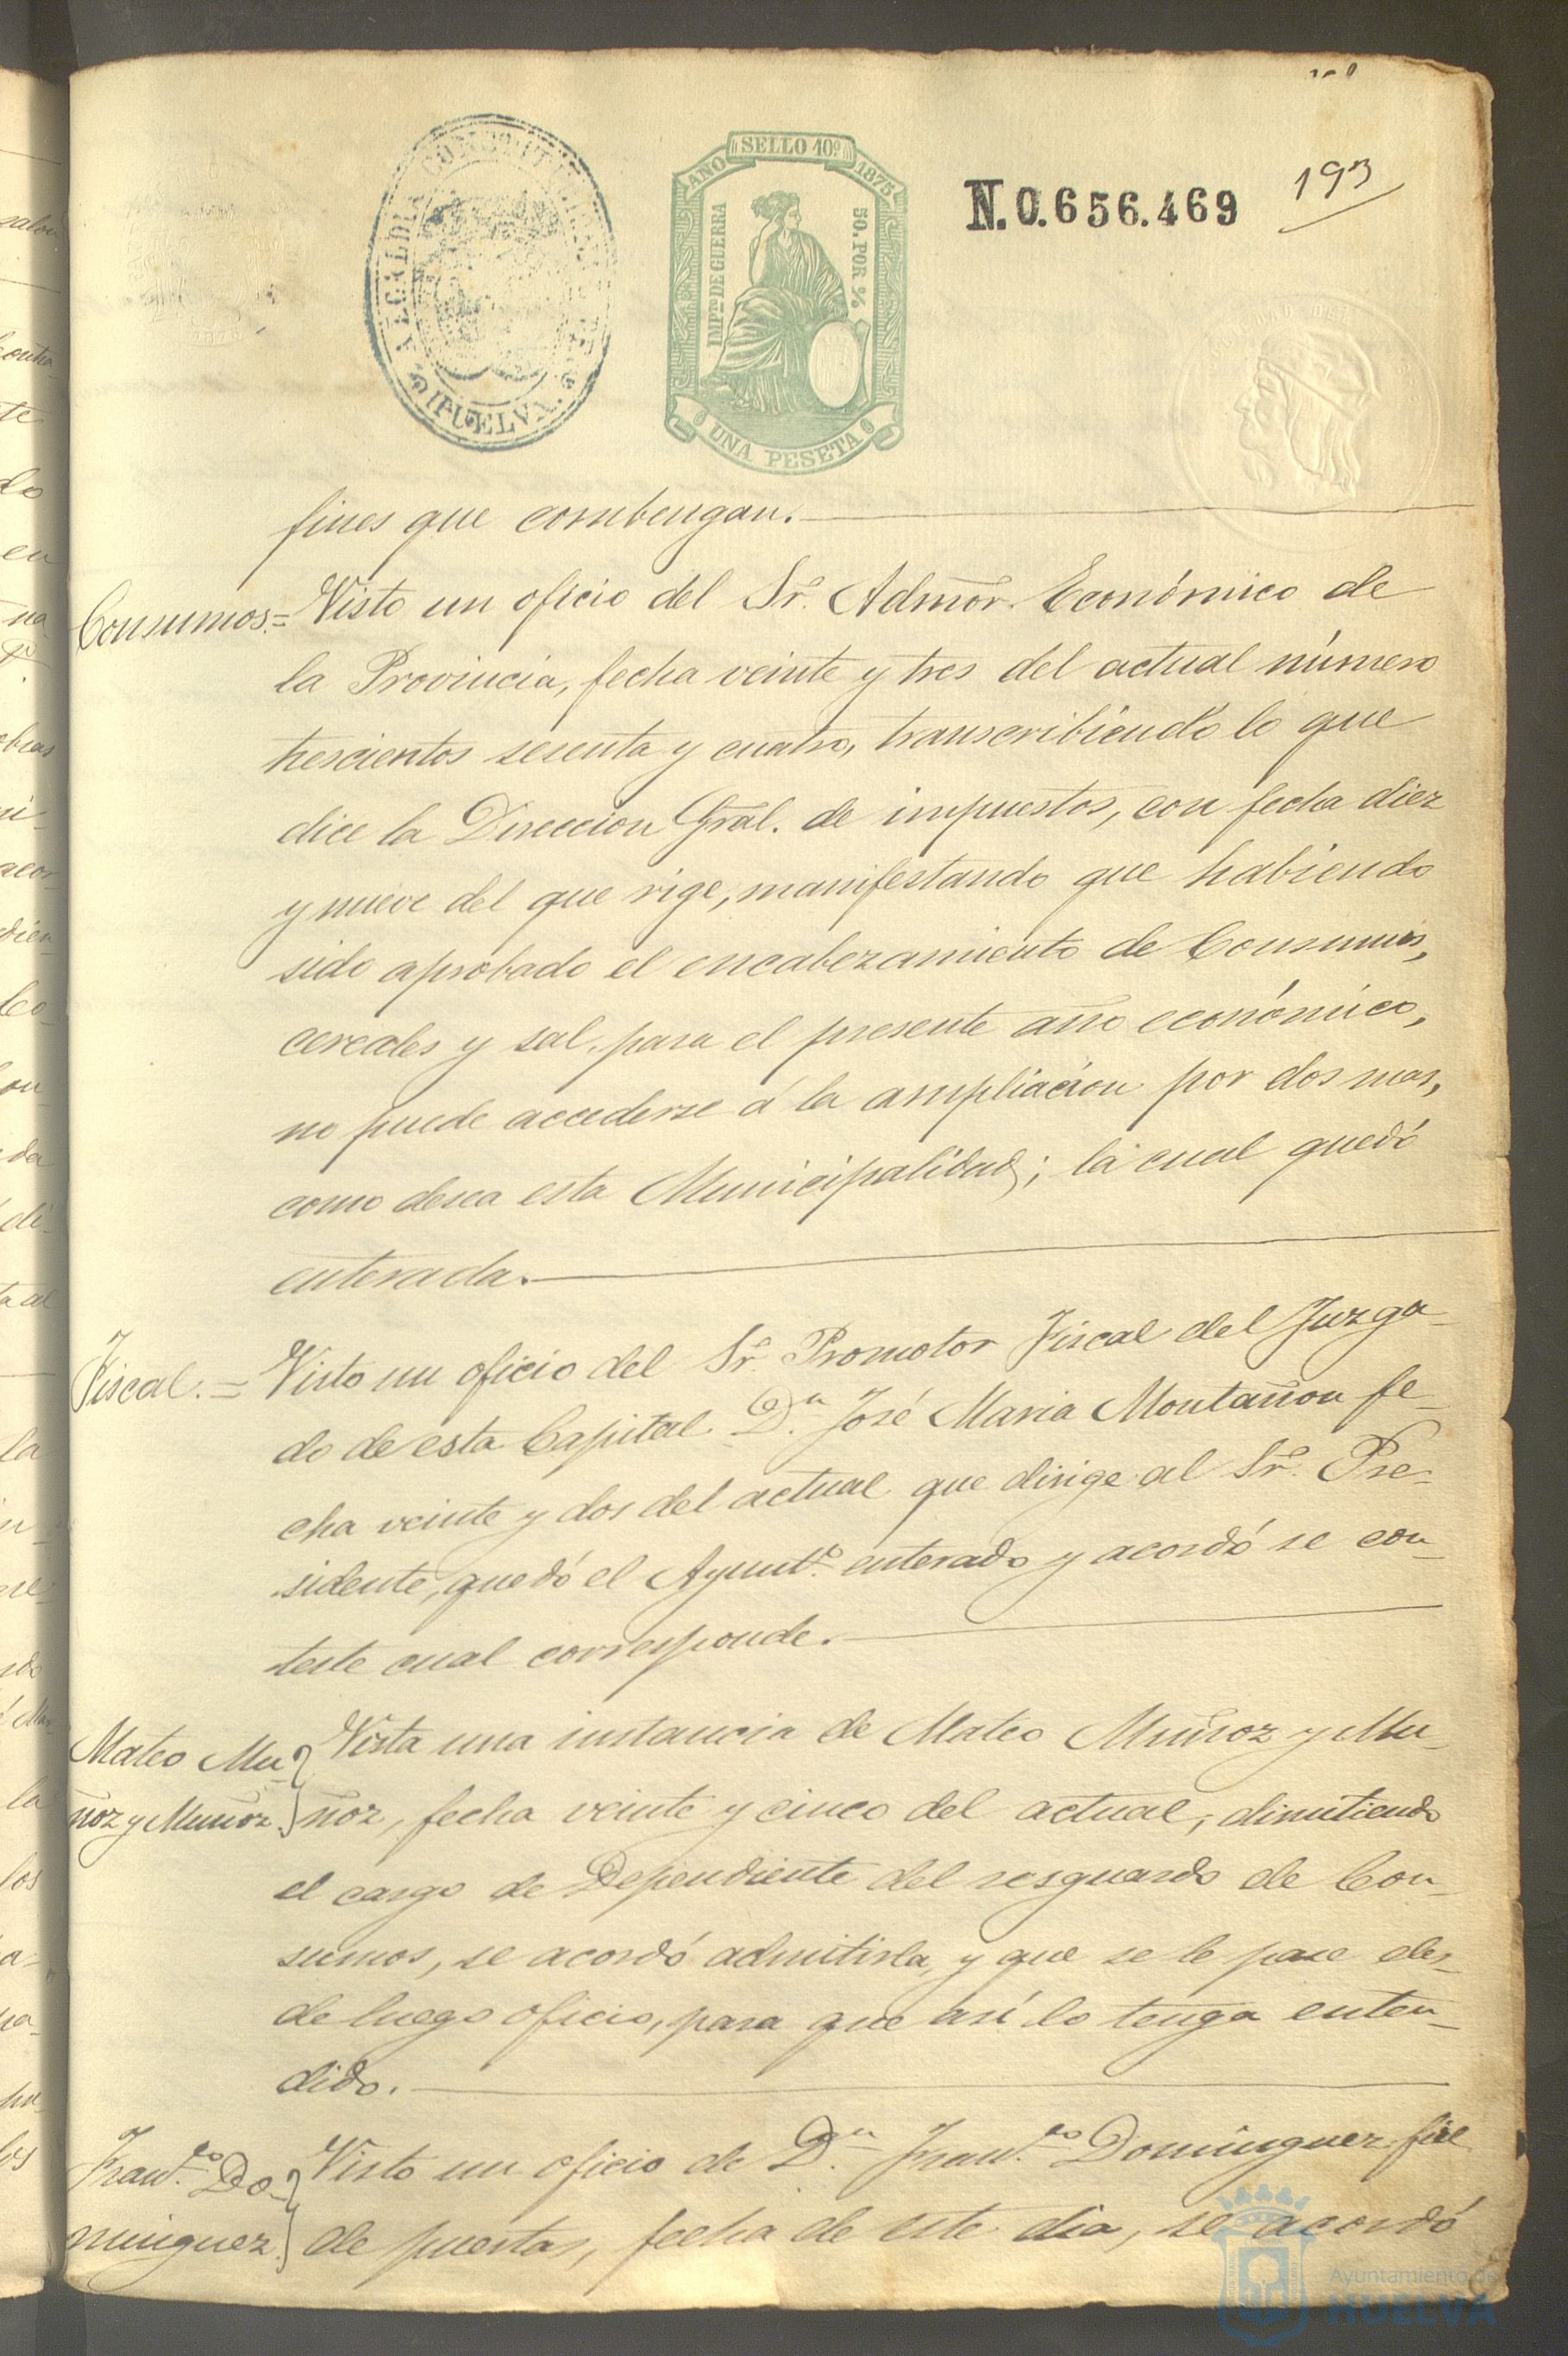 ALCALDIA CONSTITUCIONAL DE HUELVA
SELLO 10º
AÑO 1875
IMPTO DE GUERRA
50. POR %
UNA PESETA
N.0.656.469
193
fines que combengan.
Consumos.= Visto un oficio del Sr. Admor. Económico de
la Provincia, fecha veinte y tres del actual número
trescientos sesenta y cuatro, transcribiendo lo que
dice la Direccion Gral. de impuestos, con fecha diez
y nueve del que rige, manifestando que habiendo
sido aprobado el encabezamiento de Consumos,
cereales y sal, para el presente año económico,
no puede accederse á la ampliacion por dos mas,
como desea esta Municipalidad; la cual quedó
enterada.
Fiscal.= Visto un oficio del Sr. Promotor Fiscal del Juzga-
do de esta Capital Dn. José Maria Montañon fe-
cha veinte y dos del actual que dirige al Sr. Pre-
sidente, quedó el Ayuntº. enterado y acordó se con-
teste cual corresponde.
Mateo Mu- Vista una instancia de Mateo Muñoz y Mu-
ñoz y Muñoz. ñoz, fecha veinte y cinco del actual, dimitiendo
el cargo de Dependiente del resguardo de Con-
sumos, se acordó admitirla, y que se le pase des-
de luego oficio, para que así lo tenga enten-
dido.
Franco. Do- Visto un oficio de Dn. Franco. Dominguez fiel
minguez. de puertas, fecha de este dia, se acordó
Ayuntamiento de
HUELVA